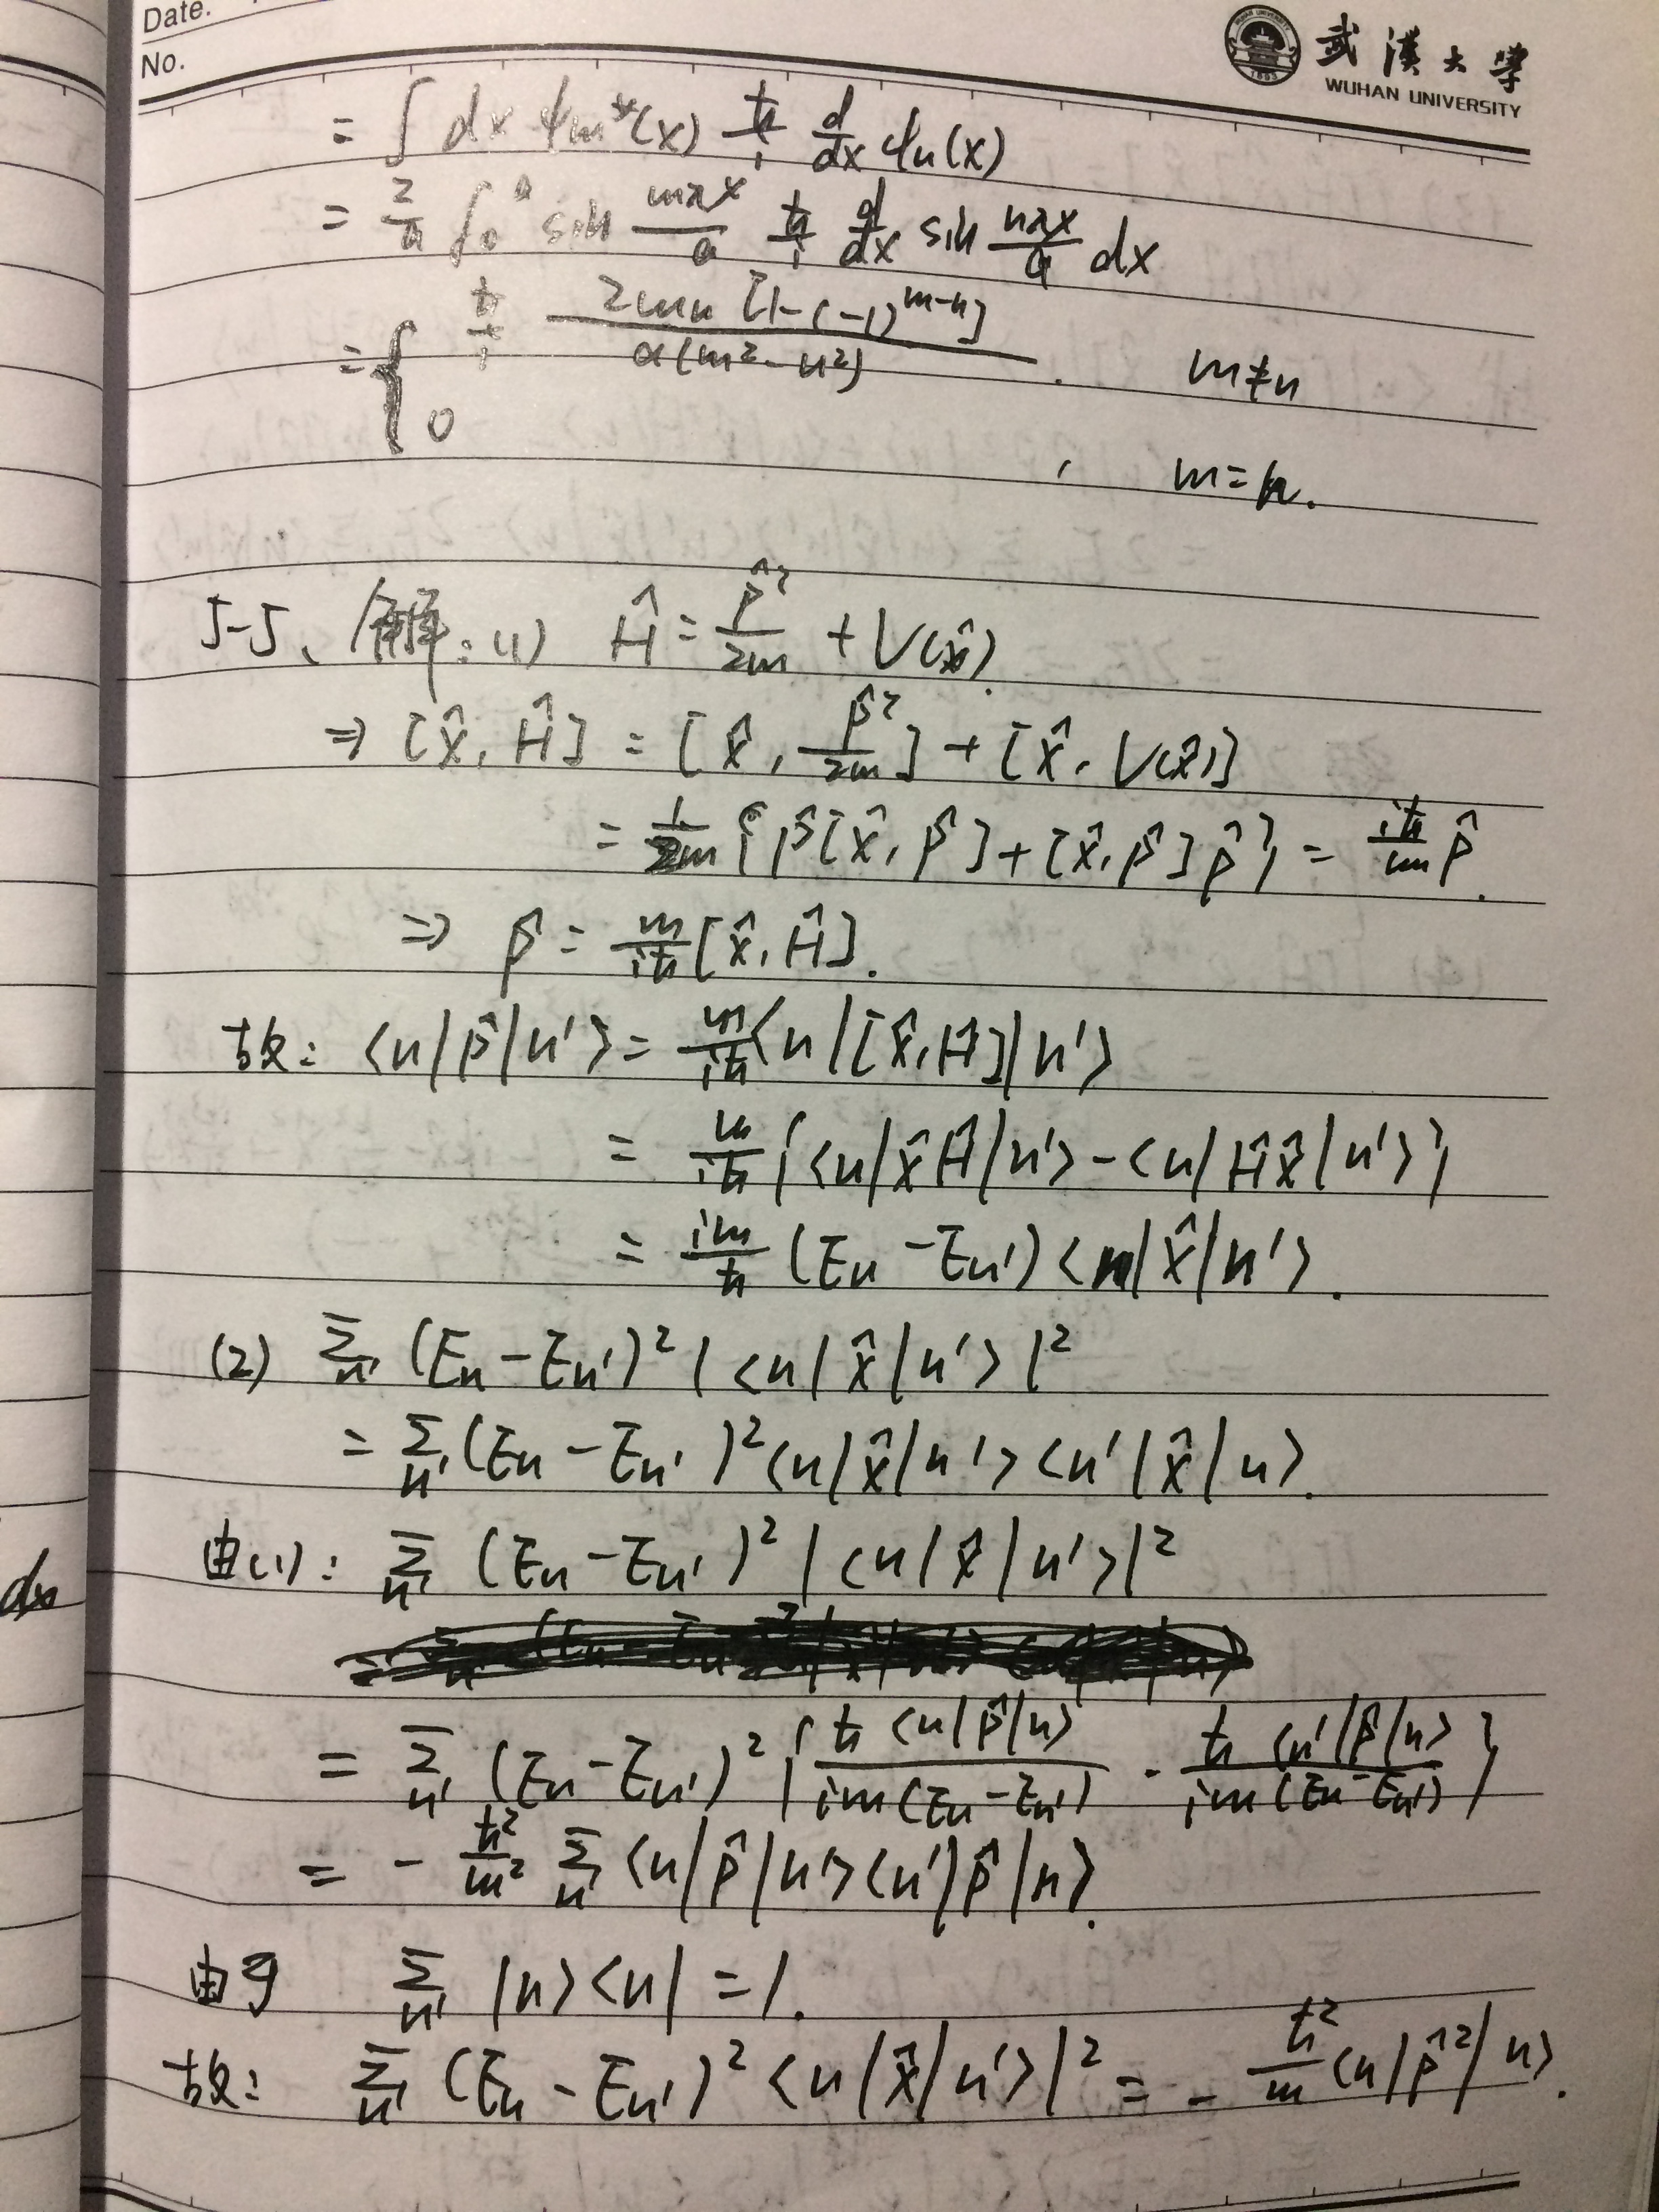 Date.
No.
武漢大学
WUHAN UNIVERSITY
= ∫ dx ψm*(x) ħ/i d/dx ψn(x)
= 2/a ∫0^a sin mπx/a ħ/i d/dx sin nπx/a dx
= { ħ/i 2mn [1-(-1)^(m-n)] / a(m²-n²) . m≠n
0 , m=n.
5-5、解:(1) Ĥ = p̂²/2m + V(x̂).
⇒ [x̂, Ĥ] = [x̂, p̂²/2m] + [x̂, V(x̂)]
= 1/2m {p̂[x̂, p̂] + [x̂, p̂]p̂} = iħ/m p̂.
⇒ p̂ = m/iħ [x̂, Ĥ].
故: <n|p̂|n'> = m/iħ <n|[x̂,Ĥ]|n'>
= m/iħ {<n|x̂Ĥ|n'> - <n|Ĥx̂|n'>}
= im/ħ (En - En') <n|x̂|n'>.
(2) Σn' (En - En')² |<n|x̂|n'>|²
= Σn' (En - En')² <n|x̂|n'> <n'|x̂|n>.
由(1): Σn' (En - En')² |<n|x̂|n'>|²
dx
= Σn' (En - En')² { ħ<n|p̂|n> / im(En - En') · ħ<n'|p̂|n> / im(En - En') }
= - ħ²/m² Σn' <n|p̂|n'> <n'|p̂|n>.
由于 Σn' |n><n| = 1.
故: Σn' (En - En')² <n|x̂|n'>|² = - ħ²/m <n|p̂²|n>.